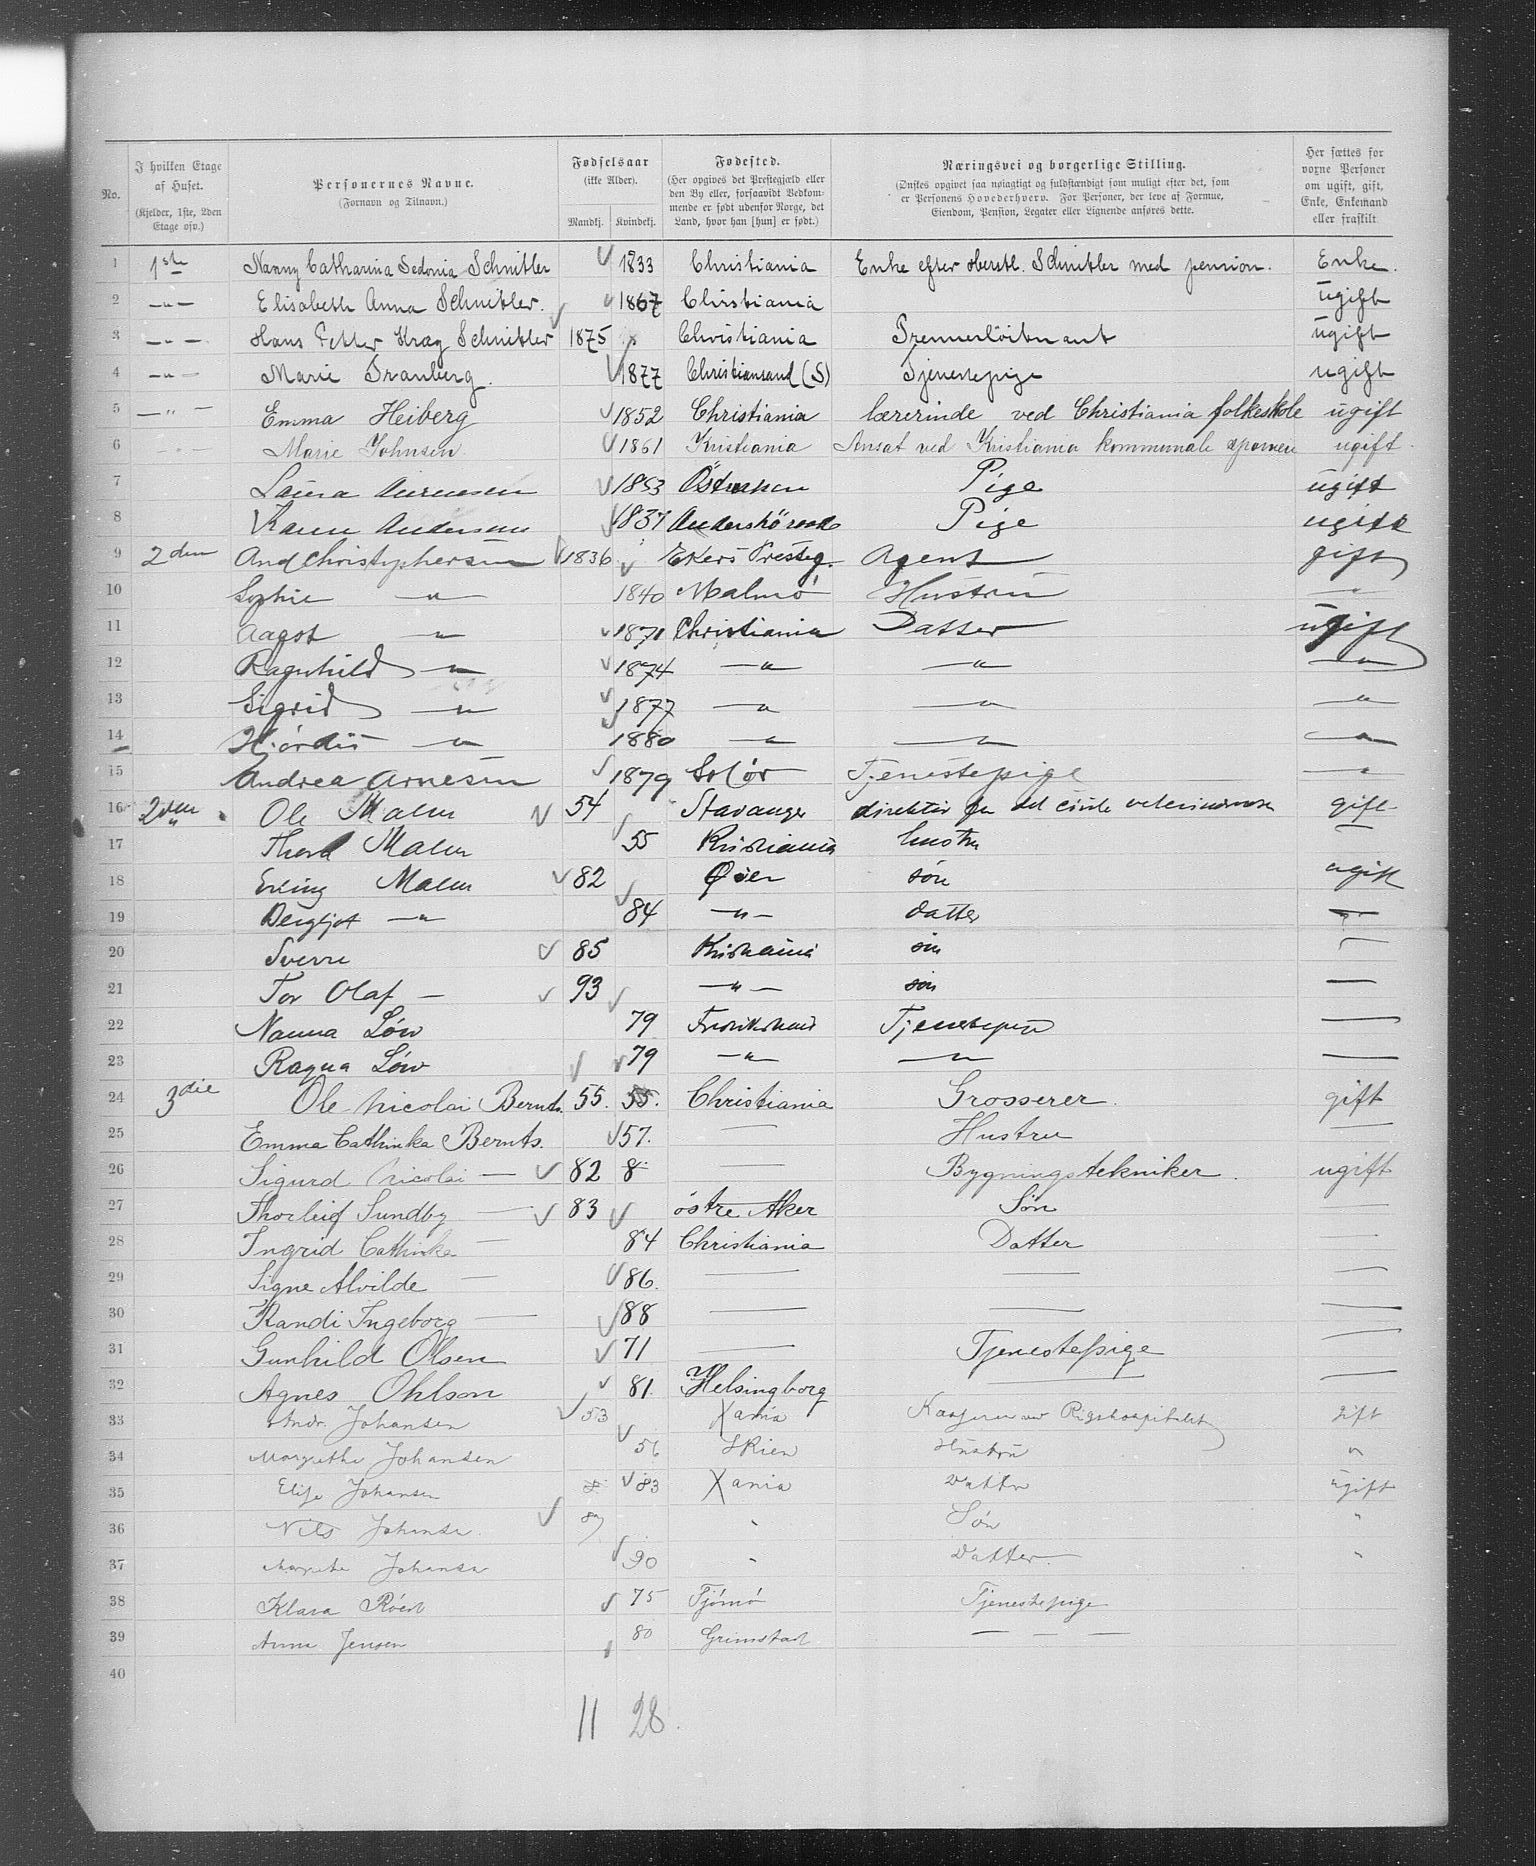 No.
I hvilken Etage af Huset. (Kjelder, 1ste, 2den Etage osv.)
Personernes Navne. (Fornavn og Tilnavn.)
Fødselsaar (ikke Alder). Mandkj. Kvindekj.
Fødested. (Her opgives det Prestegjæld eller den By eller, forsaavidt Vedkommende er født udenfor Norge, det Land, hvor han [hun] er født.)
Næringsvei og borgerlige Stilling. (Ønskes opgivet saa nøiagtigt og fuldstændigt som muligt efter det, som er Personens Hovederhverv. For Personer, der leve af Formue, Eiendom, Pension, Legater eller Lignende anføres dette.
Her sættes for voxne Personer om ugift, gift, Enke, Enkemand eller fraskilt
1 1ste Nanny Catharina Sedonia Schnitler 1833 Christiania Enke efter Oberstl. Schnitler med pension. Enke.
2 —„— Elisabeth Anna Schnitler. 1867 Christiania ugift
3 —„— Hans Petter Krag Schnitler 1875 Christiania Premierløitnant ugift
4 —„— Marie Tranberg. 1877 Christiansand (S) Tjenestepige ugift
5 —„— Emma Heiberg 1852 Christiania lærerinde ved Christiania folkeskole ugift
6 —„— Marie Johnsen 1861 Kristiania Ansat ved Kristiania kommunale ugift
7 Laura 1853 Pige ugift
8 Andersen 1837 Pige ugift
9 2den And Christophersen 1836 Ekers Presteg. Agent gift
10 Sophie —„— 1840 Malmö Hustru „
11 Aagot —„— 1871 Christiania Datter ugift
12 Ragnhild —„— 1874 —„— —„— —„—
13 Sigrid —„— 1877 —„— —„— —„—
14 Hjördis —„— 1880 —„— —„— —„—
15 Andrea Arnesen 1879 Solör Tjenestepige —„—
16 2den Ole Malm 54 Stavanger direktör for det civile veterinærvæsen gift
17 Thora Malm 55 Kristiania hustru
18 Erling Malm 82 Øier sön ugift
19 Bergljot —„— 84 —„— datter —
20 Sverre 85 Kristiania sön —
21 Tor Olaf — 93 —„— sön —
22 Nanna Löw 79 Fredrikshald Tjenestepige —
23 Ragna Löw 79 —„— —„— —
24 3die Ole Nicolai Bernts. 55. 55. Christiania Grosserer. gift
25 Emma Cathinka Bernts. 57. — Hustru —
26 Sigurd Nicolai — 82 8 — Bygningstekniker. ugift
27 Thorleif Sundby — 83 östre Aker Sön —
28 Ingrid Cathinka — 84 Christiania Datter —
29 Signe Alvilde — 86. — — —
30 Randi Ingeborg — 88 — — —
31 Gunhild Olsen 71 — Tjenestepige —
32 Agnes Ohlson 81 Helsingborg — —
33 Andr. Johansen 53 Xania Kasserer ved Rigshospitalet gift
34 Margrethe Johansen 56 Skien Hustru „
35 Johansen 83 Xania Datter ugift
36 Nils Johansen 87 „ Sön „
37 Margrethe Johansen 90 „ Datter „
38 Klara 75 Tjömö Tjenestepige
39 Anna Jensen 80 Grimstad — — —
40
11 28.